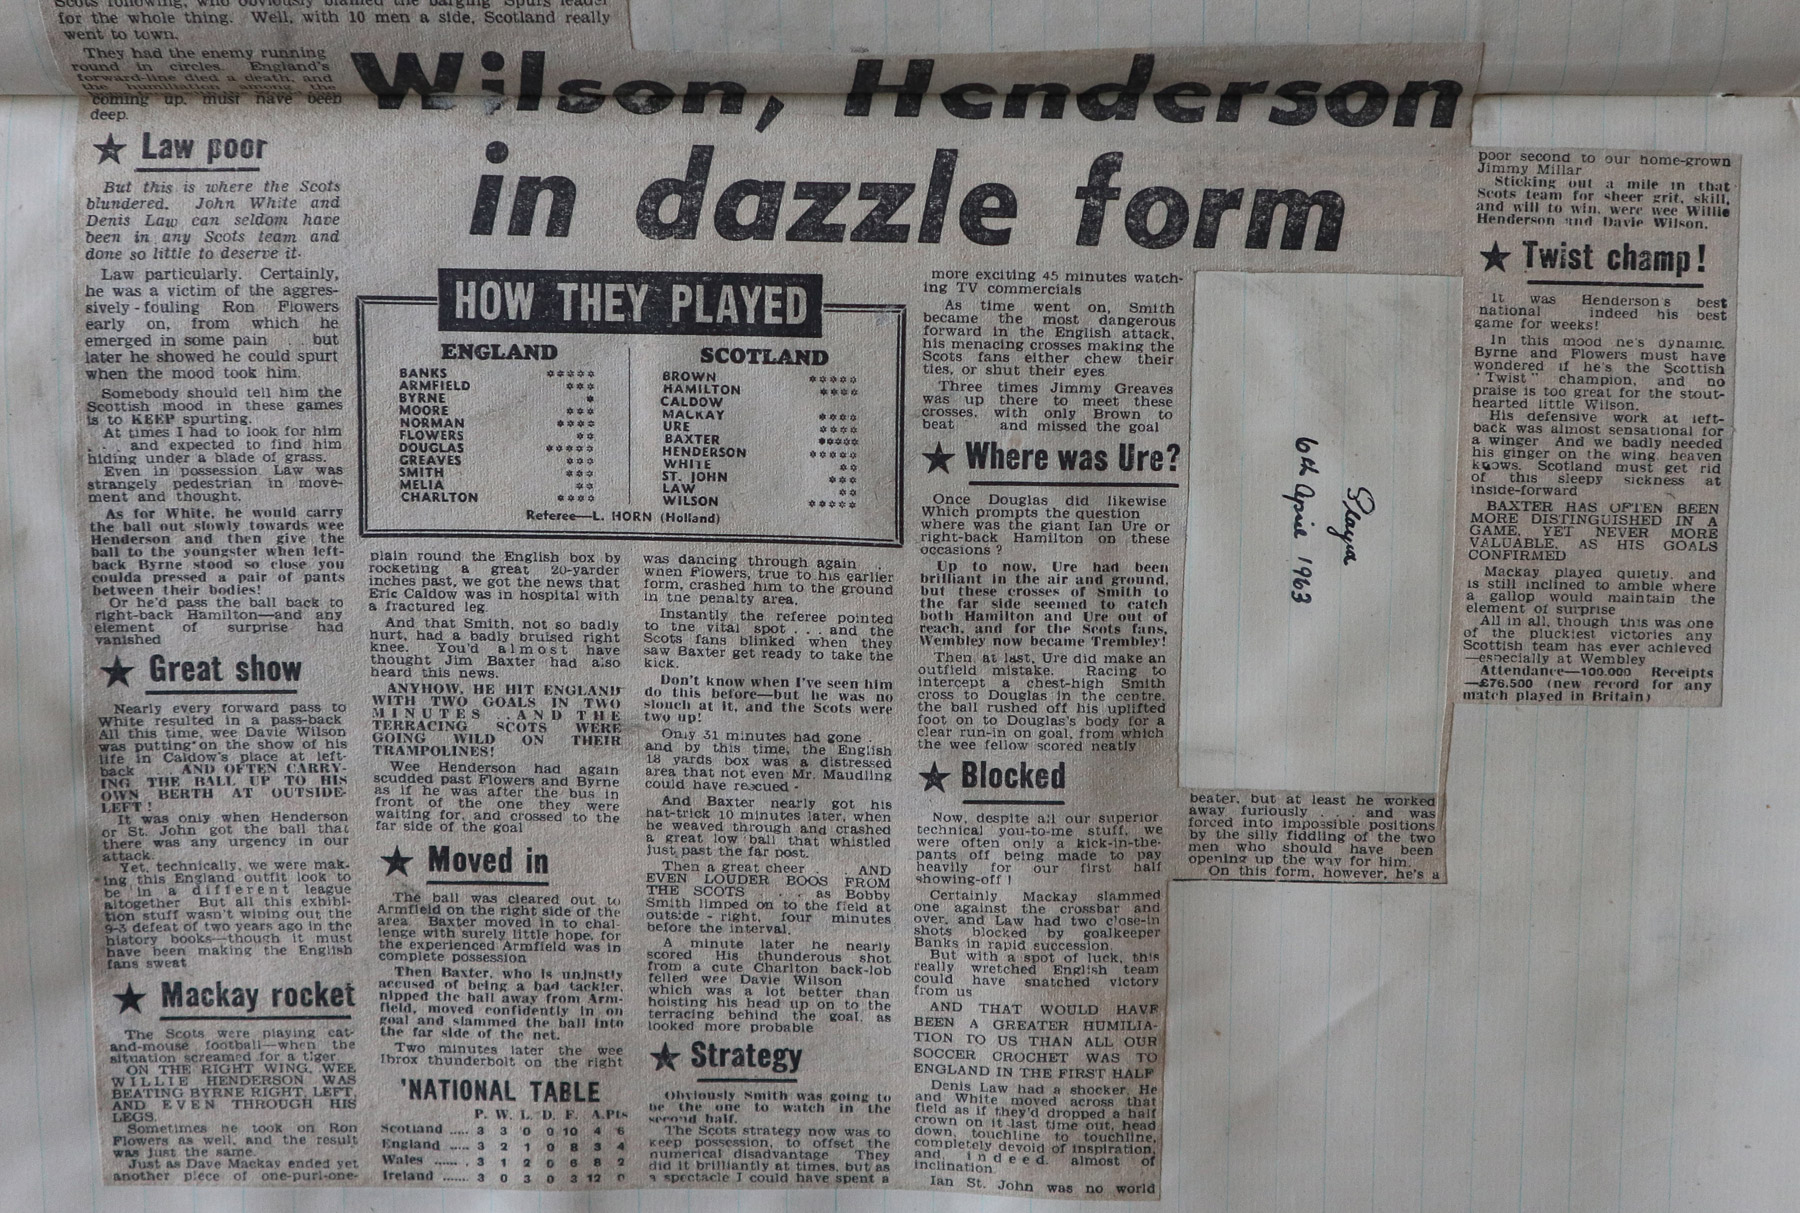 Scots following, who obviously blamed the barging Spurs leader
for the whole thing. Well, with 10 men a side, Scotland really
went to town.
They had the enemy running
round in circles. England's
forward-line died a death, and
the humiliation among the
coming up, must have been
deep.
Wilson, Henderson
in dazzle form
★ Law poor
But this is where the Scots
blundered. John White and
Denis Law can seldom have
been in any Scots team and
done so little to deserve it.
Law particularly. Certainly,
he was a victim of the aggres-
sively-fouling Ron Flowers
early on, from which he
emerged in some pain . . but
later he showed he could spurt
when the mood took him.
Somebody should tell him the
Scottish mood in these games
is to KEEP spurting.
At times I had to look for him
. . . and expected to find him
hiding under a blade of grass.
Even in possession Law was
strangely pedestrian in move-
ment and thought.
As for White, he would carry
the ball out slowly towards wee
Henderson and then give the
ball to the youngster when left-
back Byrne stood so close you
coulda pressed a pair of pants
between their bodies!
Or he'd pass the ball back to
right-back Hamilton—and any
element of surprise had
vanished
★ Great show
Nearly every forward pass to
White resulted in a pass-back
All this time, wee Davie Wilson
was putting on the show of his
life in Caldow's place at left-
back . . . AND OFTEN CARRY-
ING THE BALL UP TO HIS
OWN BERTH AT OUTSIDE-
LEFT!
It was only when Henderson
or St. John got the ball that
there was any urgency in our
attack.
Yet, technically, we were mak-
ing this England outfit look to
be in a different league
altogether But all this exhibi-
tion stuff wasn't wiping out the
9-3 defeat of two years ago in the
history books—though it must
have been making the English
fans sweat
★ Mackay rocket
The Scots were playing cat-
and-mouse football—when the
situation screamed for a tiger.
ON THE RIGHT WING, WEE
WILLIE HENDERSON WAS
BEATING BYRNE RIGHT, LEFT,
AND EVEN THROUGH HIS
LEGS.
Sometimes he took on Ron
Flowers as well, and the result
was just the same.
Just as Dave Mackay ended yet
another piece of one-purl-one-
HOW THEY PLAYED
ENGLAND
BANKS *****
ARMFIELD ***
BYRNE *
MOORE ***
NORMAN ****
FLOWERS **
DOUGLAS *****
GREAVES ***
SMITH ***
MELIA **
CHARLTON ****
SCOTLAND
BROWN *****
HAMILTON ****
CALDOW
MACKAY ****
URE ****
BAXTER *****
HENDERSON *****
WHITE **
ST. JOHN ***
LAW **
WILSON *****
Referee—L. HORN (Holland)
plain round the English box by
rocketing a great 20-yarder
inches past, we got the news that
Eric Caldow was in hospital with
a fractured leg.
And that Smith, not so badly
hurt, had a badly bruised right
knee. You'd almost have
thought Jim Baxter had also
heard this news.
ANYHOW, HE HIT ENGLAND
WITH TWO GOALS IN TWO
MINUTES . AND THE
TERRACING SCOTS WERE
GOING WILD ON THEIR
TRAMPOLINES!
Wee Henderson had again
scudded past Flowers and Byrne
as if he was after the bus in
front of the one they were
waiting for, and crossed to the
far side of the goal
★ Moved in
The ball was cleared out to
Armfield on the right side of the
area Baxter moved in to chal-
lenge with surely little hope, for
the experienced Armfield was in
complete possession
Then Baxter, who is unjustly
accused of being a bad tackler,
nipped the ball away from Arm-
field, moved confidently in on
goal and slammed the ball into
the far side of the net.
Two minutes later the wee
Ibrox thunderbolt on the right
'NATIONAL TABLE
P. W. L. D. F. A. Pts
Scotland ..... 3 3 0 0 10 4 6
England ..... 3 2 1 0 8 3 4
Wales ....... 3 1 2 0 6 8 2
Ireland ...... 3 0 3 0 3 12 0
was dancing through again .
when Flowers, true to his earlier
form, crashed him to the ground
in the penalty area.
Instantly the referee pointed
to the vital spot . . . and the
Scots fans blinked when they
saw Baxter get ready to take the
kick.
Don't know when I've seen him
do this before—but he was no
slouch at it, and the Scots were
two up!
Only 31 minutes had gone .
and by this time, the English
18 yards box was a distressed
area that not even Mr. Maudling
could have rescued .
And Baxter nearly got his
hat-trick 10 minutes later, when
he weaved through and crashed
a great low ball that whistled
just past the far post.
Then a great cheer . . AND
EVEN LOUDER BOOS FROM
THE SCOTS . . . as Bobby
Smith limped on to the field at
outside-right, four minutes
before the interval.
A minute later he nearly
scored His thunderous shot
from a cute Charlton back-lob
felled wee Davie Wilson
which was a lot better than
hoisting his head up on to the
terracing behind the goal, as
looked more probable
★ Strategy
Obviously Smith was going to
be the one to watch in the
second half.
The Scots strategy now was to
keep possession, to offset the
numerical disadvantage They
did it brilliantly at times, but as
a spectacle I could have spent a
more exciting 45 minutes watch-
ing TV commercials
As time went on, Smith
became the most dangerous
forward in the English attack,
his menacing crosses making the
Scots fans either chew their
ties, or shut their eyes
Three times Jimmy Greaves
was up there to meet these
crosses, with only Brown to
beat and missed the goal
★ Where was Ure?
Once Douglas did likewise
Which prompts the question
where was the giant Ian Ure or
right-back Hamilton on these
occasions?
Up to now, Ure had been
brilliant in the air and ground,
but these crosses of Smith to
the far side seemed to catch
both Hamilton and Ure out of
reach, and for the Scots fans,
Wembley now became Trembley!
Then, at last, Ure did make an
outfield mistake. Racing to
intercept a chest-high Smith
cross to Douglas in the centre,
the ball rushed off his uplifted
foot on to Douglas's body for a
clear run-in on goal, from which
the wee fellow scored neatly
★ Blocked
Now, despite all our superior
technical you-to-me stuff, we
were often only a kick-in-the-
pants off being made to pay
heavily for our first half
showing-off!
Certainly Mackay slammed
one against the crossbar and
over, and Law had two close-in
shots blocked by goalkeeper
Banks in rapid succession.
But with a spot of luck, this
really wretched English team
could have snatched victory
from us
AND THAT WOULD HAVE
BEEN A GREATER HUMILIA-
TION TO US THAN ALL OUR
SOCCER CROCHET WAS TO
ENGLAND IN THE FIRST HALF
Denis Law had a shocker. He
and White moved across that
field as if they'd dropped a half
crown on it last time out, head
down, touchline to touchline,
completely devoid of inspiration,
and, indeed, almost of
inclination
Ian St. John was no world
beater, but at least he worked
away furiously . . . and was
forced into impossible positions
by the silly fiddling of the two
men who should have been
opening up the way for him.
On this form, however, he's a
Played
6th April 1963
poor second to our home-grown
Jimmy Millar
Sticking out a mile in that
Scots team for sheer grit, skill,
and will to win, were wee Willie
Henderson and Davie Wilson.
★ Twist champ!
It was Henderson's best
national indeed his best
game for weeks!
In this mood he's dynamic.
Byrne and Flowers must have
wondered if he's the Scottish
"Twist" champion, and no
praise is too great for the stout-
hearted little Wilson.
His defensive work at left-
back was almost sensational for
a winger And we badly needed
his ginger on the wing, heaven
knows. Scotland must get rid
of this sleepy sickness at
inside-forward
BAXTER HAS OFTEN BEEN
MORE DISTINGUISHED IN A
GAME, YET NEVER MORE
VALUABLE, AS HIS GOALS
CONFIRMED
Mackay played quietly, and
is still inclined to amble where
a gallop would maintain the
element of surprise
All in all, though this was one
of the pluckiest victories any
Scottish team has ever achieved
—especially at Wembley
Attendance—100,000 Receipts
—£76,500 (new record for any
match played in Britain)